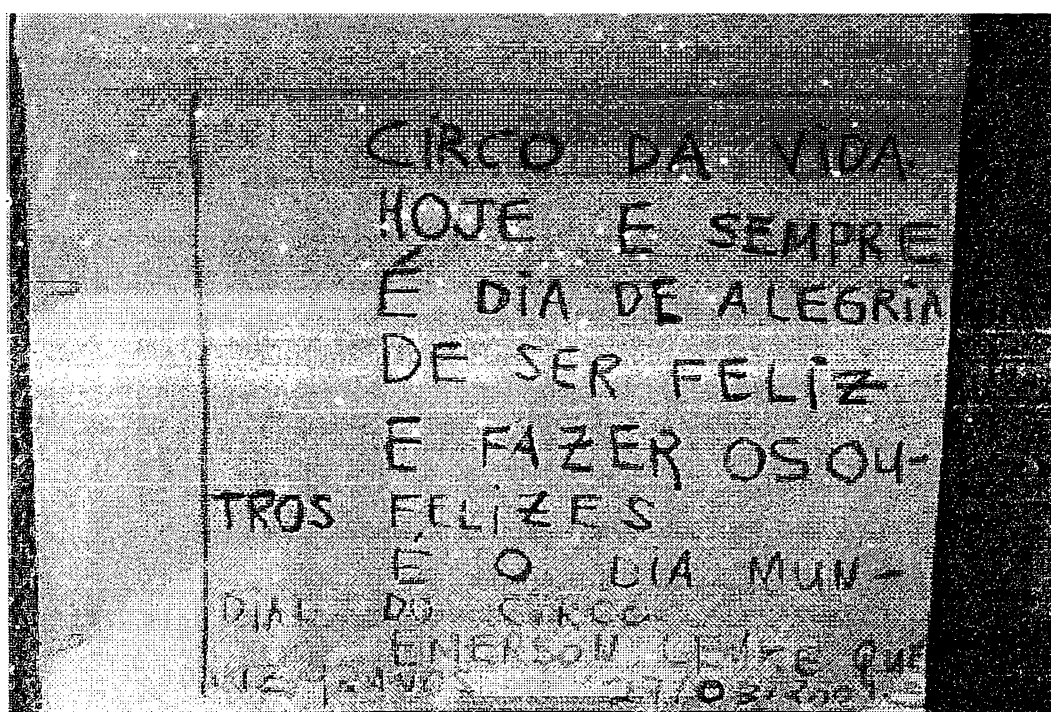 CIRCO DA VIDA.
HOJE E SEMPRE
É DIA DE ALEGRIA
DE SER FELIZ
E FAZER OS OU-
TROS FELIZES
É O DIA MUN-
DIAL DO CIRCO
EMERSON
27/03/2009